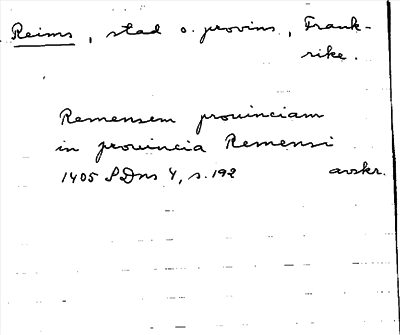 Reims, stad o. provins, Frank-
rike.
Remensem prouinciam
in prouincia Remensi
1405 SDns 4, s. 192 avskr.